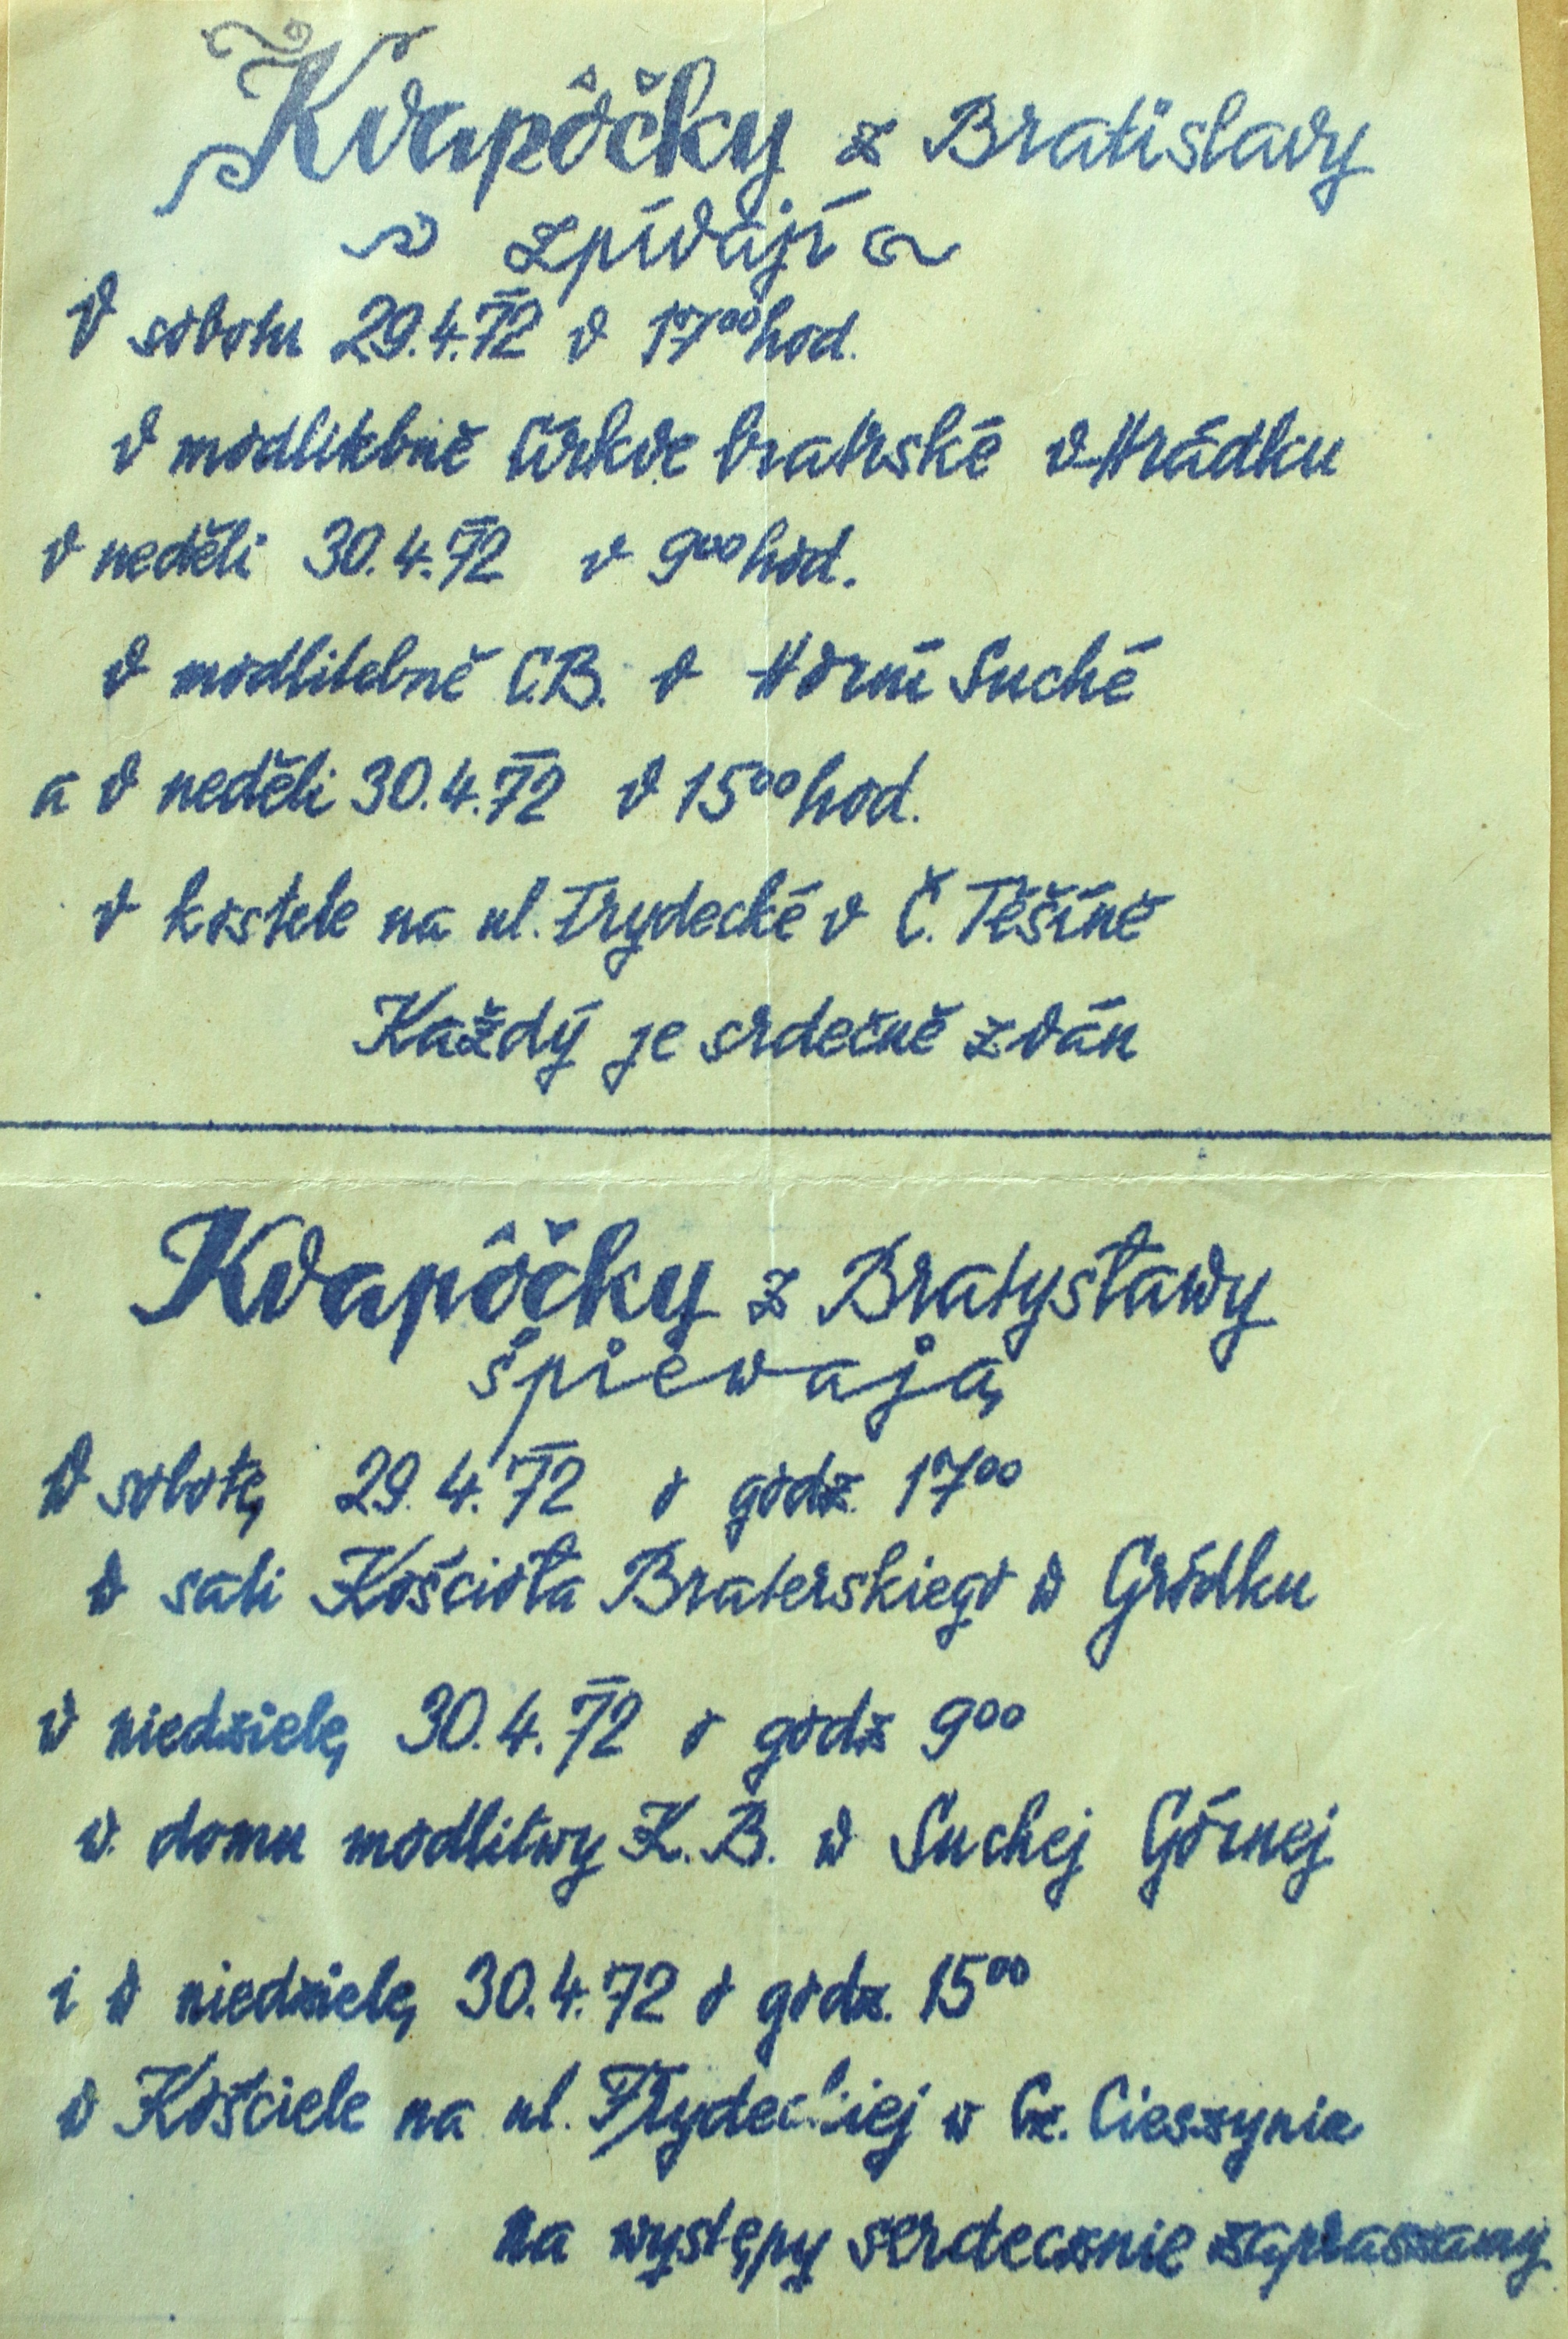 Kvapôčky z Bratislavy
zpívají
V sobotu 29.4.72 v 17⁰⁰ hod.
v modlitebně Církve bratrské v Hrádku
v neděli 30.4.72 v 9⁰⁰ hod.
v modlitebně C.B. v Horní Suché
a v neděli 30.4.72 v 15⁰⁰ hod.
v kostele na ul. Frydecké v Č. Těšíně
Každý je srdečně zván
Kvapôčky z Bratysławy
śpiewają
W sobotę 29.4.72 o godz. 17⁰⁰
w sali Kościoła Braterskiego w Gródku
w niedzielę 30.4.72 o godz 9⁰⁰
w domu modlitwy K.B. w Suchej Górnej
i w niedzielę 30.4.72 o godz. 15⁰⁰
w Kościele na ul. Frydeckiej w Cz. Cieszynie
na występy serdecznie zapraszamy